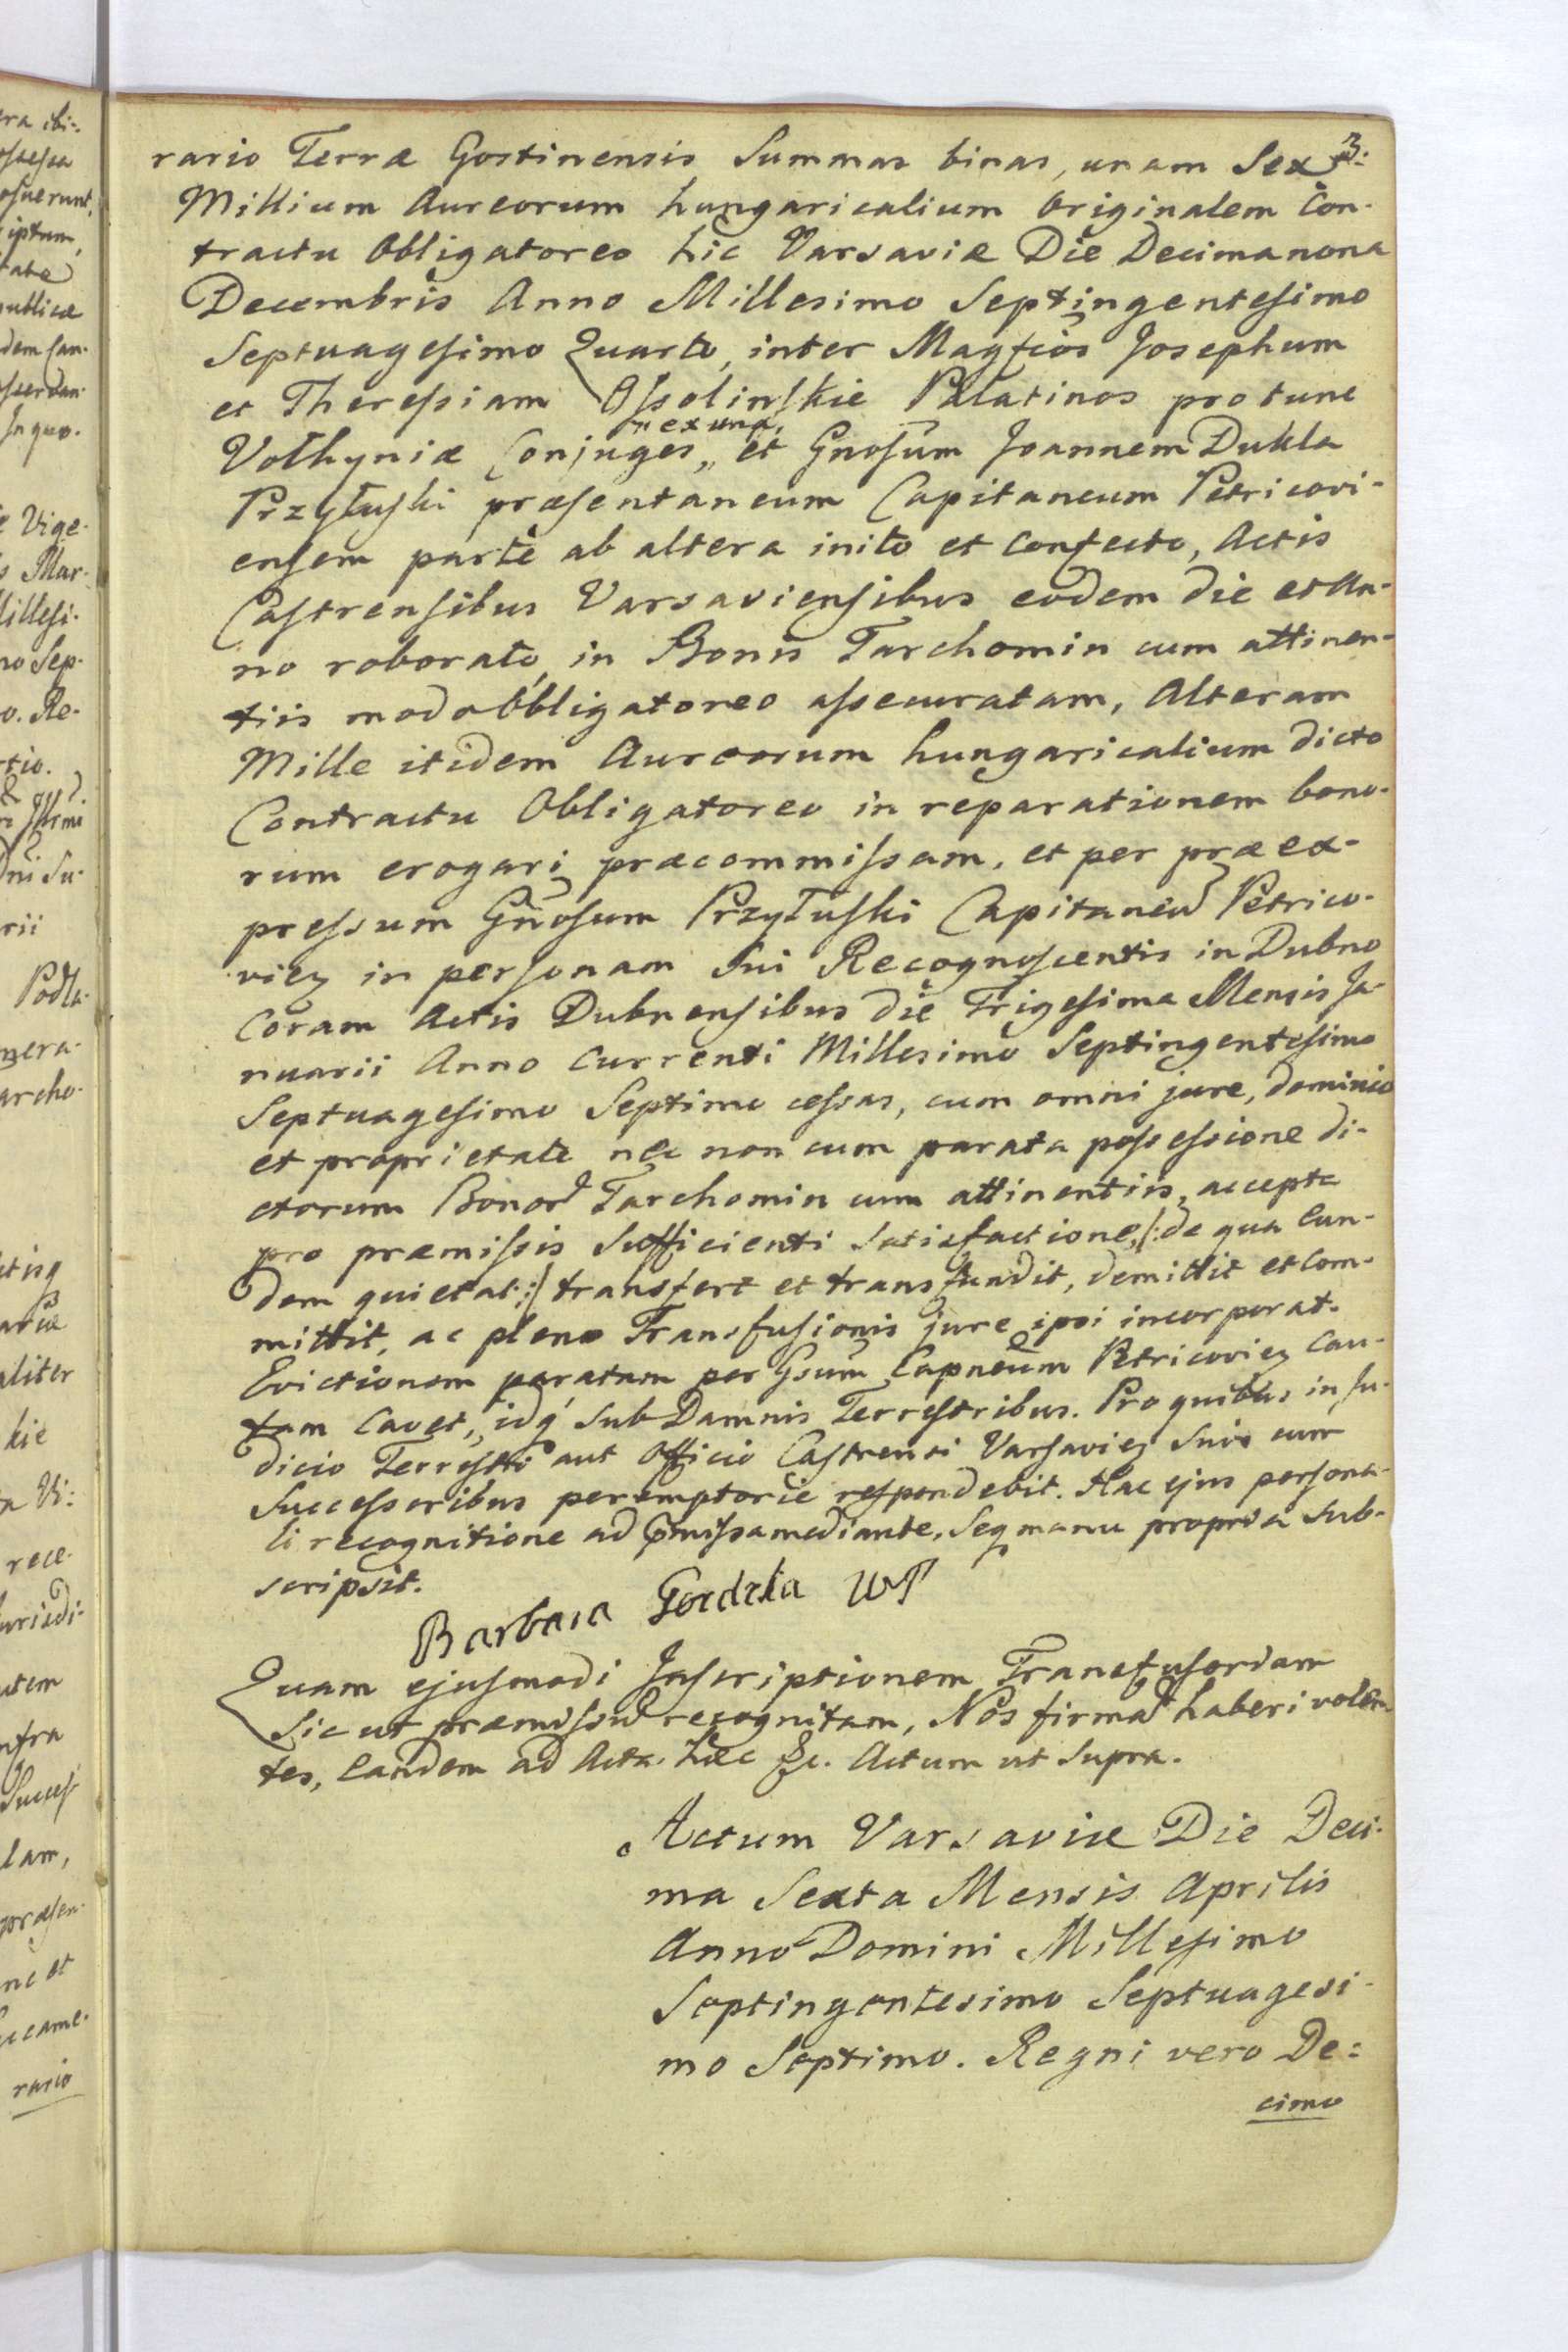 3.
rario Terræ Gostinensis, Summas binas, unam Sex
Millium Aureorum hungaricalium originalem Con-
tractu Obligatoreo hic Varsaviæ Die Decimanona
Decembris Anno Millesimo Septingentesimo
Septuagesimo Quarto, inter Magfcos Josephum
et Theresiam Ossolinskie Palatinos protunc
„ex una,
Volhyniæ Conjuges „ et Gnosum Joannem Dukla
Przyłuski præsentaneum Capitaneum Petricovi-
ensem parte ab altera inito et confecto, Actis
Castrensibus Varsaviensibus eodem die et An-
no roborato, in Bonis Tarchomin cum attinen-
tiis modo Obligatoreo assecuratam, Alteram
Mille itidem Aureorum hungaricalium dicto
Contractu Obligatoreo in reparationem bono-
rum erogari præcommissam, et per præex-
pressum Gnosum Przyłuski Capitaneu Petrico-
vien in personam Sui Recognoscentis in Dubno
Coram Actis Dubnensibus die Trigesima Mensis Ja-
nuarii Anno Currenti Millesimo Septingentesimo
Septuagesimo Septimo cessas, cum omni jure, dominio
et proprietate nec non cum parata possessione di-
ctorum Bonor Tarchomin cum attinentiis, accepta
pro præmissis sufficienti satisfactione, /: de qua Eun-
dem quietat :/ transfert et transfundit, demittit et com-
mittit, ac pleno Transfusionis jure ipsi incorporat.
Evictionem paratam per Gsum Capneum Petricovien Cau-
tam Cavet, idq sub Damnis Terrestribus. Pro quibus in Ju-
dicio Terrestri aut Officio Castrensi Varsavien Suis cum
Successoribus peremptorie respondebit. Hac ejus persona-
li recognitione ad pmissa mediante. Seq manu propria sub-
scripsit.
Barbara
Quam ejusmodi Inscriptionem Transfusordam
sic ut præmissu recognitam, Nos firma haberi volen
tes, Eandem ad Acta hæc &c. Actum ut supra.
Actum Varsaviæ Die Deci-
ma Sexta Mensis Aprilis
Anno Domini Millesimo
Septingentesimo Septuagesi-
mo Septimo. Regni vero De:
cimo
era ibi:
osuerunt,
iptum,
publicæ
dem Can-
In quo.
e Vige-
s Mar-
Millesi-
no Sep-
o. Re-
rtio.
rii
Podla-
archo-
aliter
kie
a Vi:
rece-
urisdi-
utem
nfra
Succes
lam,
præsen-
nc et
rario